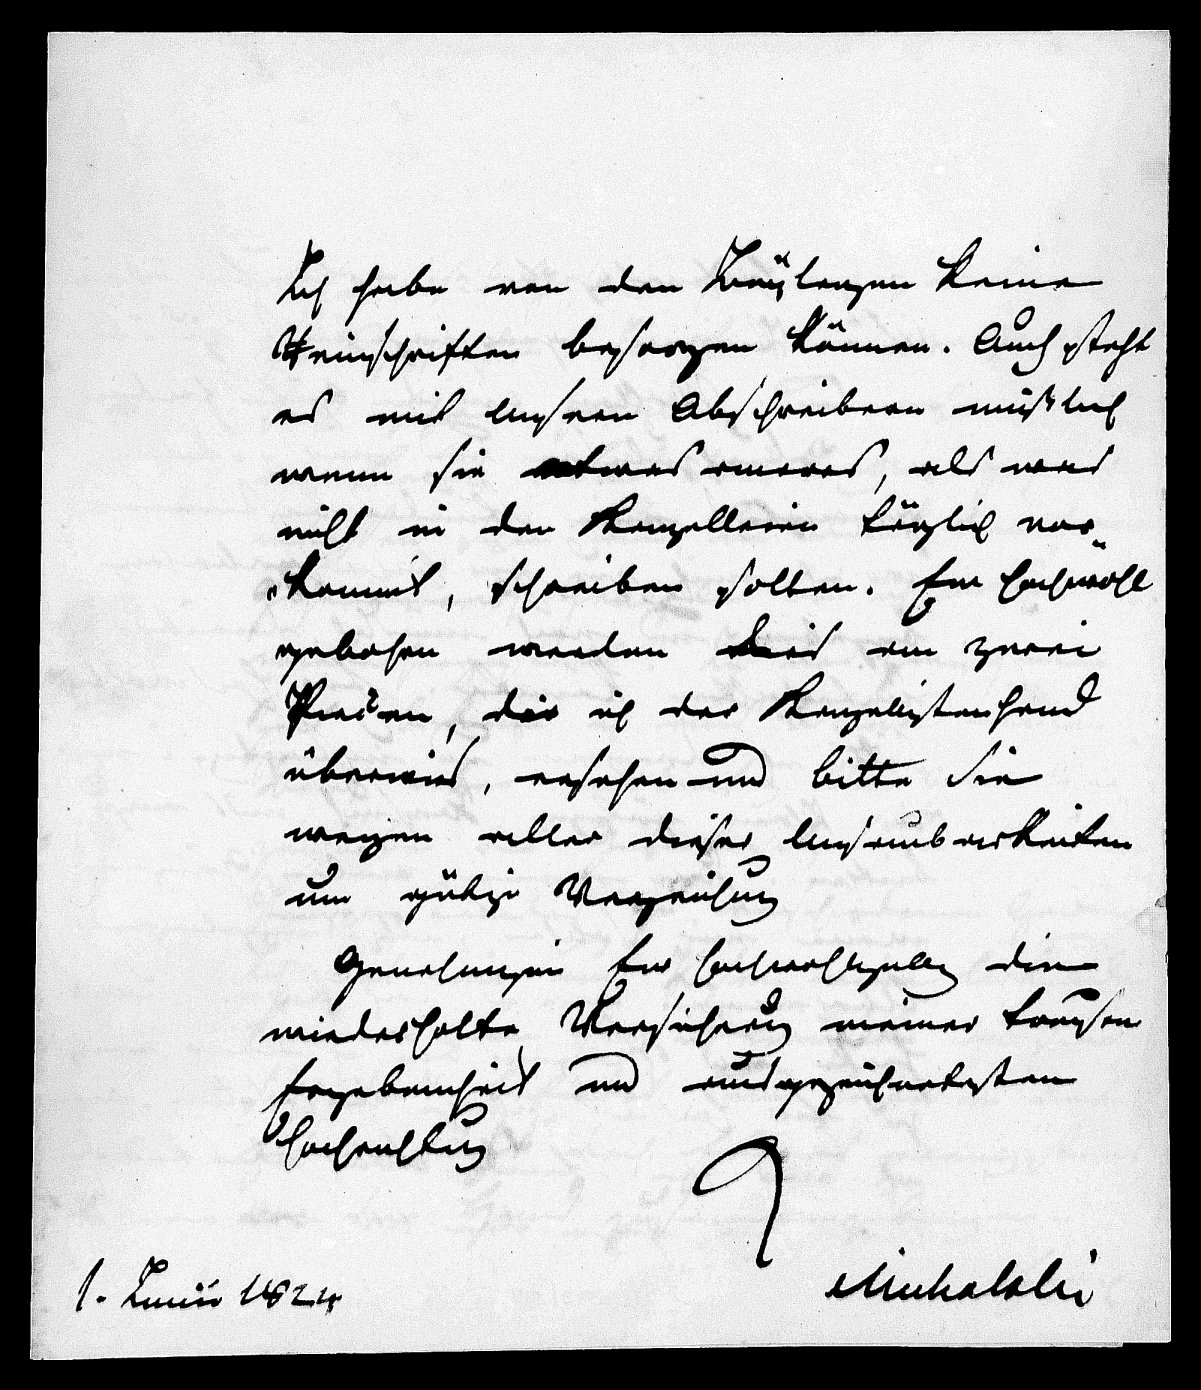 Ich habe von den Beÿlagen keine
Reinschriften besorgen können. Auch steht
es mit unsern Abschreibern mißlich
wenn sie etwas anderes, als was
nicht in den Kanzelleien täglich vor-
kommt, schreiben sollen. Ew Hochwohl
gebohren werden dies an zwei
Piecen, die ich der Kanzelistenhand
überwies, ersehen und bitte Sie
wegen aller dieser Unsauberkeiten
um gütige Verzeihung
Genehmigen Ew Hochwohlgeb die
wiederholte Versicherung meiner treusten
Ergebenheit und ausgezeichnetesten
Hochachtung
1. Junii 1824 Michalski